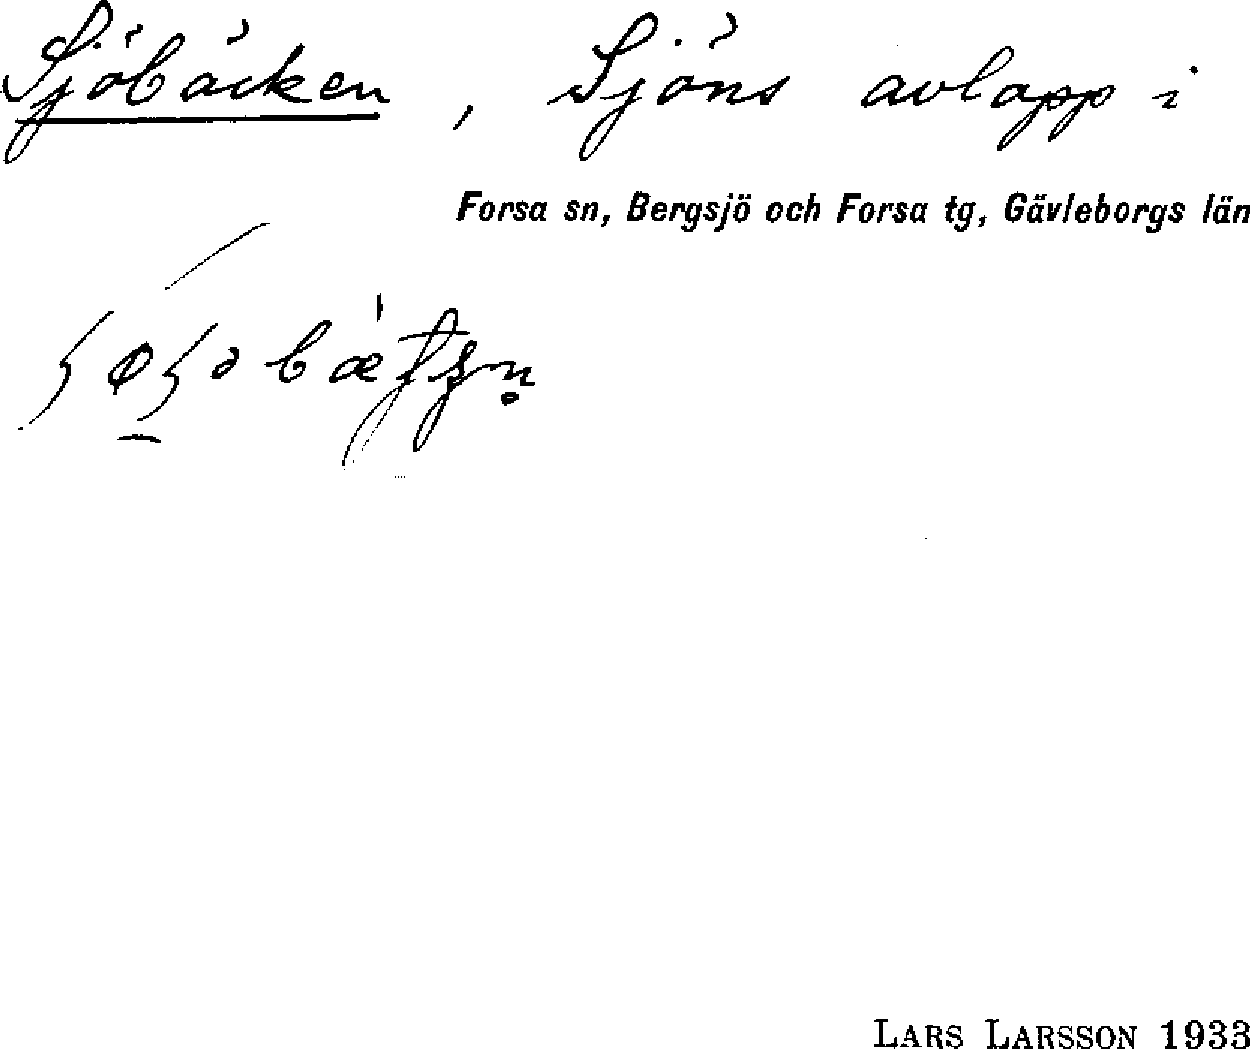 Sjöbäcken, Sjöns avlopp i
Forsa sn, Bergsjö och Forsa tg, Gävleborgs län
LARS LARSSON 1933